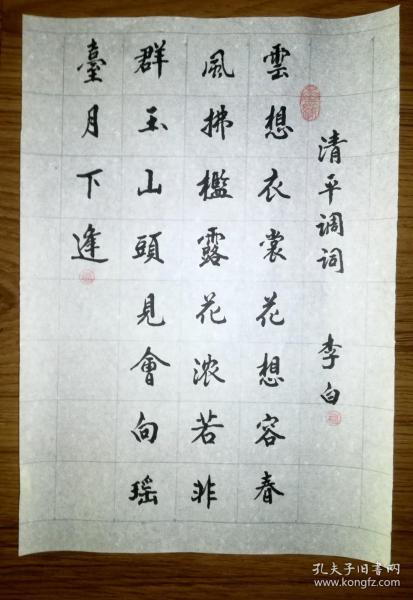 清平调词 李白
雲想衣裳花想容春
風拂檻露花浓若非
群玉山頭見會向瑶
臺月下逢
孔夫子旧书网
www.kongfz.com